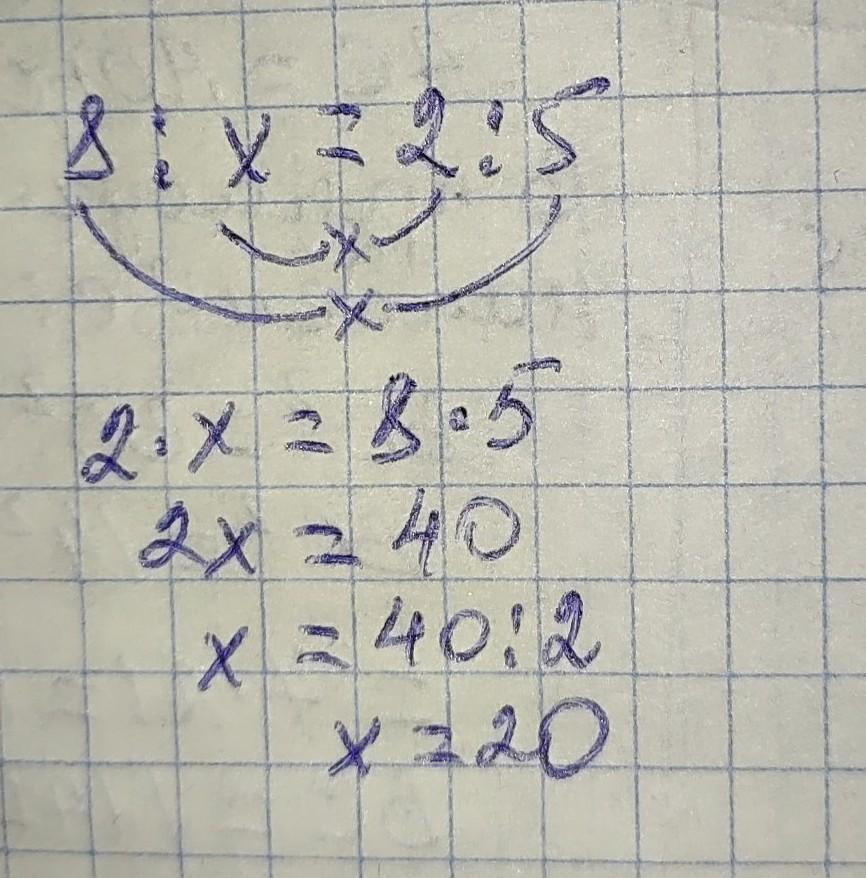 8 : x = 2 : 5
x
x
2 · x = 8 · 5
2x = 40
x = 40 : 2
x = 20